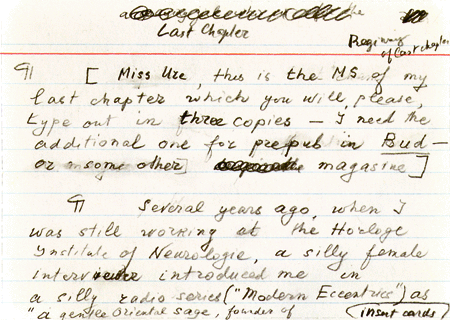 the
Last Chapter
Beginning
of last chapter
¶ [ Miss Ure, this is the MS of my
last chapter which you will, please,
type out in three copies — I need the
additional one for prepub in Bud —
or in some other] magazine]
¶ Several years ago, when I
was still working at the Horloge
Institute of Neurologie, a silly female
interviewer introduced me in
a silly radio series ("Modern Eccentrics") as
"a gentle Oriental sage, founder of
(insert cards)